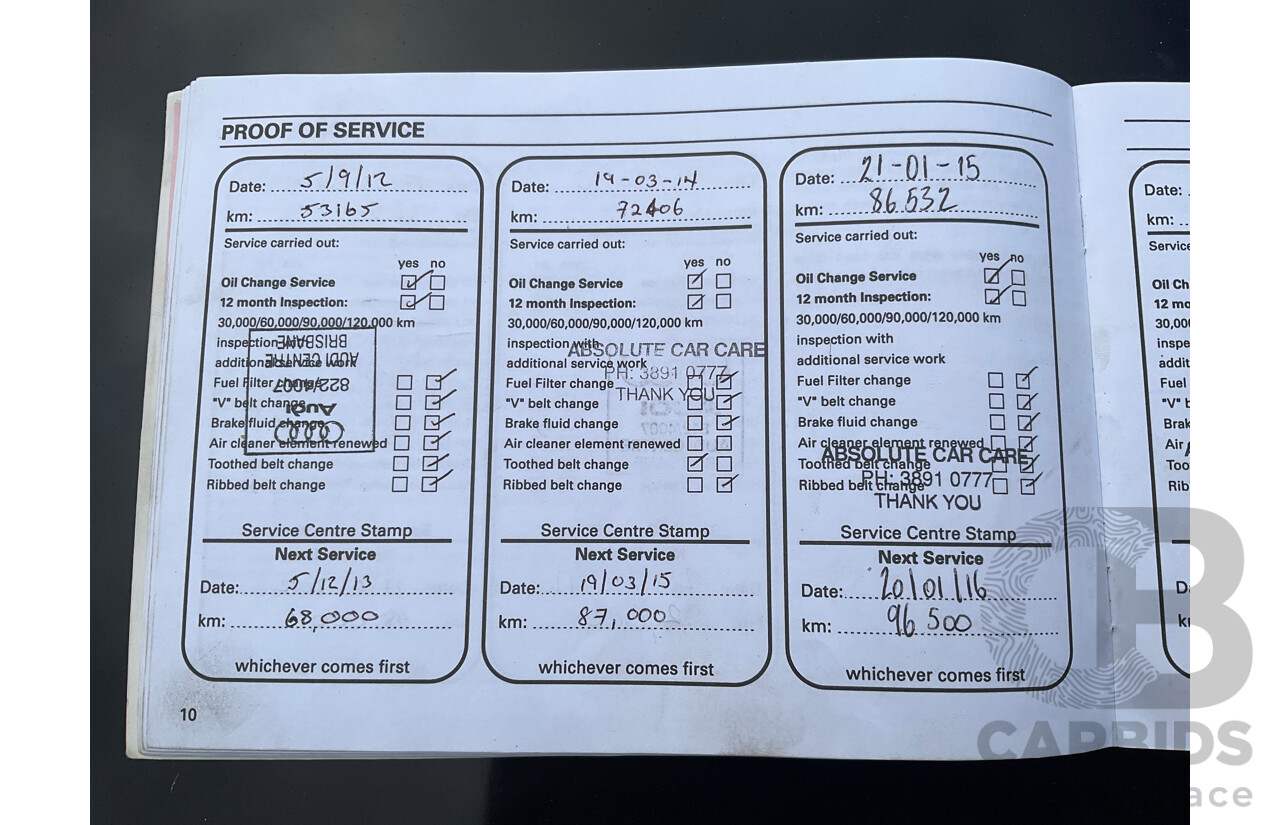 PROOF OF SERVICE
Date: 5/9/12
km: 53165
Service carried out:
yes no
Oil Change Service
12 month Inspection:
30,000/60,000/90,000/120,000 km
inspection with
additional service work
Fuel Filter change
"V" belt change
Brake fluid change
Air cleaner element renewed
Toothed belt change
Ribbed belt change
Audi
822/4007
AUDI CENTRE
BRISBANE
Service Centre Stamp
Next Service
Date: 5/12/13
km: 68,000
whichever comes first
Date: 19-03-14
km: 72406
Service carried out:
yes no
Oil Change Service
12 month Inspection:
30,000/60,000/90,000/120,000 km
inspection with
additional service work
Fuel Filter change
"V" belt change
Brake fluid change
Air cleaner element renewed
Toothed belt change
Ribbed belt change
ABSOLUTE CAR CARE
PH: 3891 0777
THANK YOU
Service Centre Stamp
Next Service
Date: 19/03/15
km: 87,000
whichever comes first
Date: 21-01-15
km: 86.532
Service carried out:
yes no
Oil Change Service
12 month Inspection:
30,000/60,000/90,000/120,000 km
inspection with
additional service work
Fuel Filter change
"V" belt change
Brake fluid change
Air cleaner element renewed
Toothed belt change
Ribbed belt change
ABSOLUTE CAR CARE
PH: 3891 0777
THANK YOU
Service Centre Stamp
Next Service
Date: 20/01/16
km: 96 500
whichever comes first
10
Date:
km:
CARBIDS